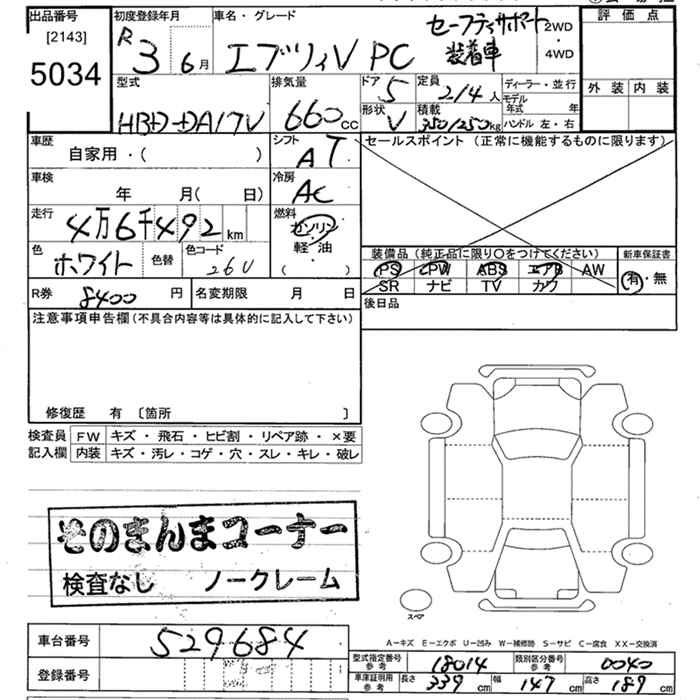 出品番号 初度登録年月 車名・グレード セーフティサポート 2WD 評価点
[2143] R 3 6月 エブリィV PC 装着車 4WD
5034
型式 排気量 ドア 5 定員 2/4人 ディーラー・並行 外装 内装
HBD-DA17V 660cc 形状 V 積載 350/250kg モデル年式 年
ハンドル 左・右
車歴 自家用・( ) シフト AT セールスポイント (正常に機能するものに限ります)
車検 年 月( 日) 冷房 AC
走行 4万6千492km 燃料 ガソリン
色 ホワイト 色替 色コード 26U 軽油
( )
装備品(純正品に限り○をつけてください) 新車保証書
PS PW ABS エアB AW 有・無
SR ナビ TV カワ
R券 8400円 名変期限 月 日 後日品
注意事項申告欄(不具合内容等は具体的に記入して下さい)
修復歴 有 〔箇所 〕
検査員 FW キズ・飛石・ヒビ割・リペア跡・×要
記入欄 内装 キズ・汚レ・コゲ・穴・スレ・キレ・破レ
そのまんまコーナー
検査なし ノークレーム
スペア
車台番号 529684
A-キズ E-エクボ U-凹み W-補修跡 S-サビ C-腐食 XX-交換済
登録番号
型式指定番号 参考 18014 類別区分番号 参考 0040
車庫証明用 参考 長さ 339cm 幅 147cm 高さ 189cm